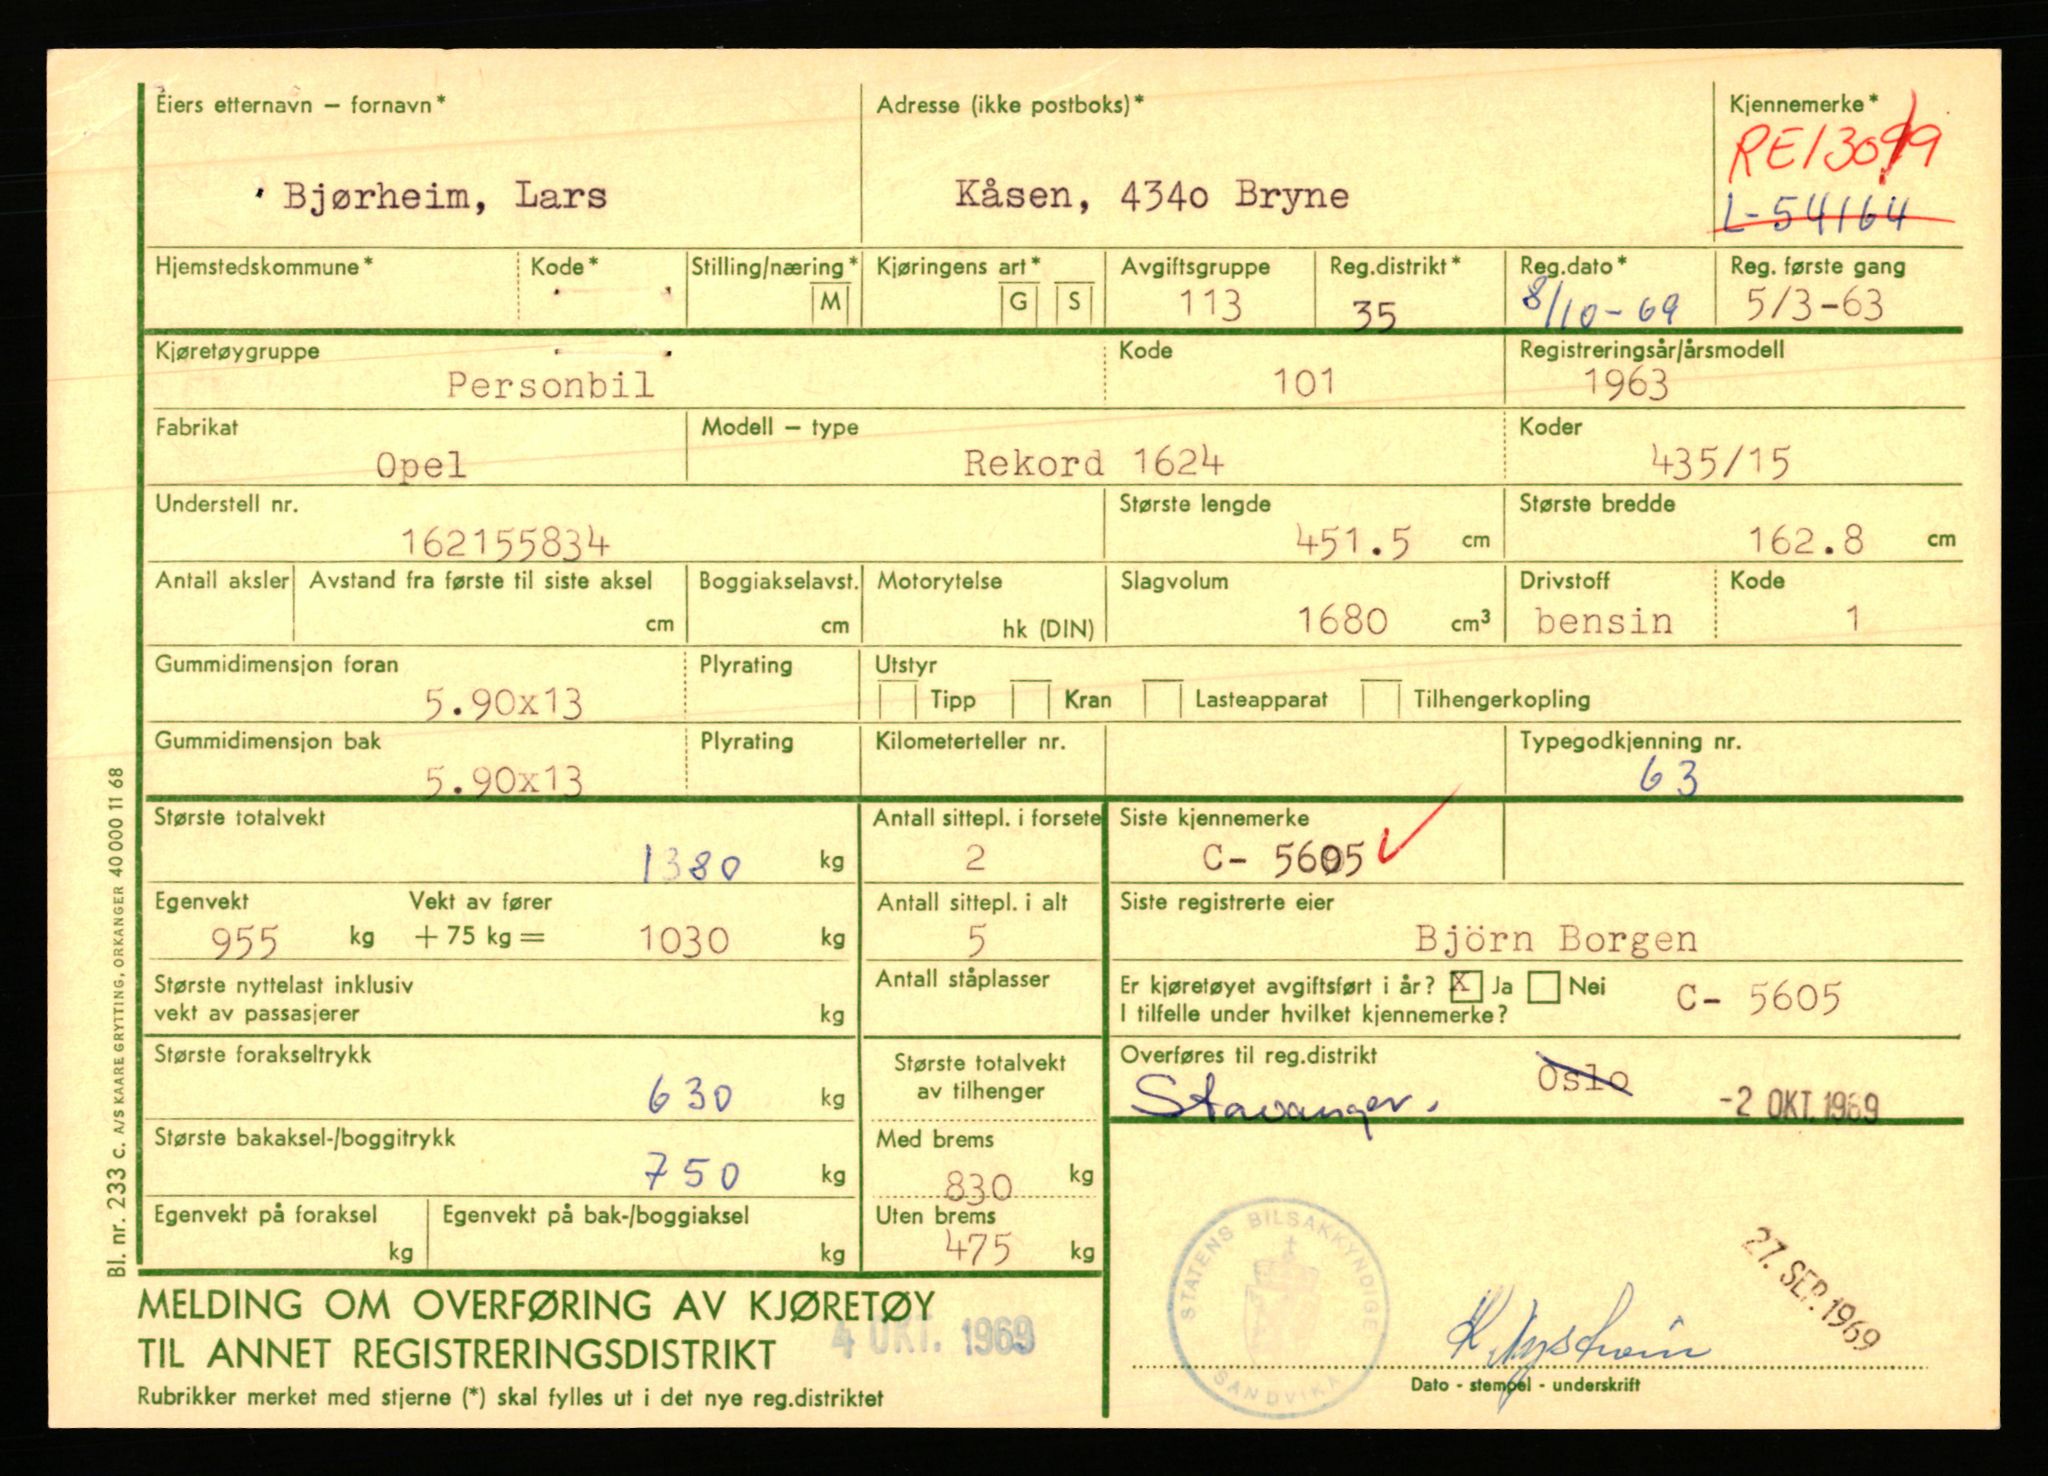 Eiers etternavn – fornavn* Adresse (ikke postboks)* Kjennemerke*
Bjørheim, Lars Kåsen, 4340 Bryne
L-54164
Hjemstedskommune* Kode* Stilling/næring* Kjøringens art* Avgiftsgruppe Reg.distrikt* Reg.dato* Reg. første gang
M G S 113 35 8/10-69 5/3-63
Kjøretøygruppe Kode Registreringsår/årsmodell
Personbil 101 1963
Fabrikat Modell – type Koder
Opel Rekord 1624 435/15
Understell nr. Største lengde Største bredde
162155834 451.5 cm 162.8 cm
Antall aksler Avstand fra første til siste aksel Boggiakselavst. Motorytelse Slagvolum Drivstoff Kode
cm cm hk (DIN) 1680 cm³ bensin 1
Gummidimensjon foran Plyrating Utstyr
5.90x13 Tipp Kran Lasteapparat Tilhengerkopling
Gummidimensjon bak Plyrating Kilometerteller nr. Typegodkjenning nr.
5.90x13 63
Største totalvekt Antall sittepl. i forsete Siste kjennemerke
1380 kg 2 C- 5605
Egenvekt Vekt av fører Antall sittepl. i alt Siste registrerte eier
955 kg + 75 kg = 1030 kg 5 Björn Borgen
Største nyttelast inklusiv Antall ståplasser Er kjøretøyet avgiftsført i år? X Ja Nei C- 5605
vekt av passasjerer kg I tilfelle under hvilket kjennemerke?
Største forakseltrykk Største totalvekt Overføres til reg.distrikt
630 kg av tilhenger Stavanger. Oslo -2 OKT. 1969
Største bakaksel-/boggitrykk Med brems
750 kg 830 kg
Egenvekt på foraksel Egenvekt på bak-/boggiaksel Uten brems
kg kg 475 kg
STATENS BILSAKKYNDIGE
SANDVIKA
27. SEP. 1969
MELDING OM OVERFØRING AV KJØRETØY
TIL ANNET REGISTRERINGSDISTRIKT 4 OKT. 1969
Dato - stempel - underskrift
Rubrikker merket med stjerne (*) skal fylles ut i det nye reg.distriktet
Bl. nr. 233 c. A/S KAARE GRYTTING, ORKANGER 40 000 11 68